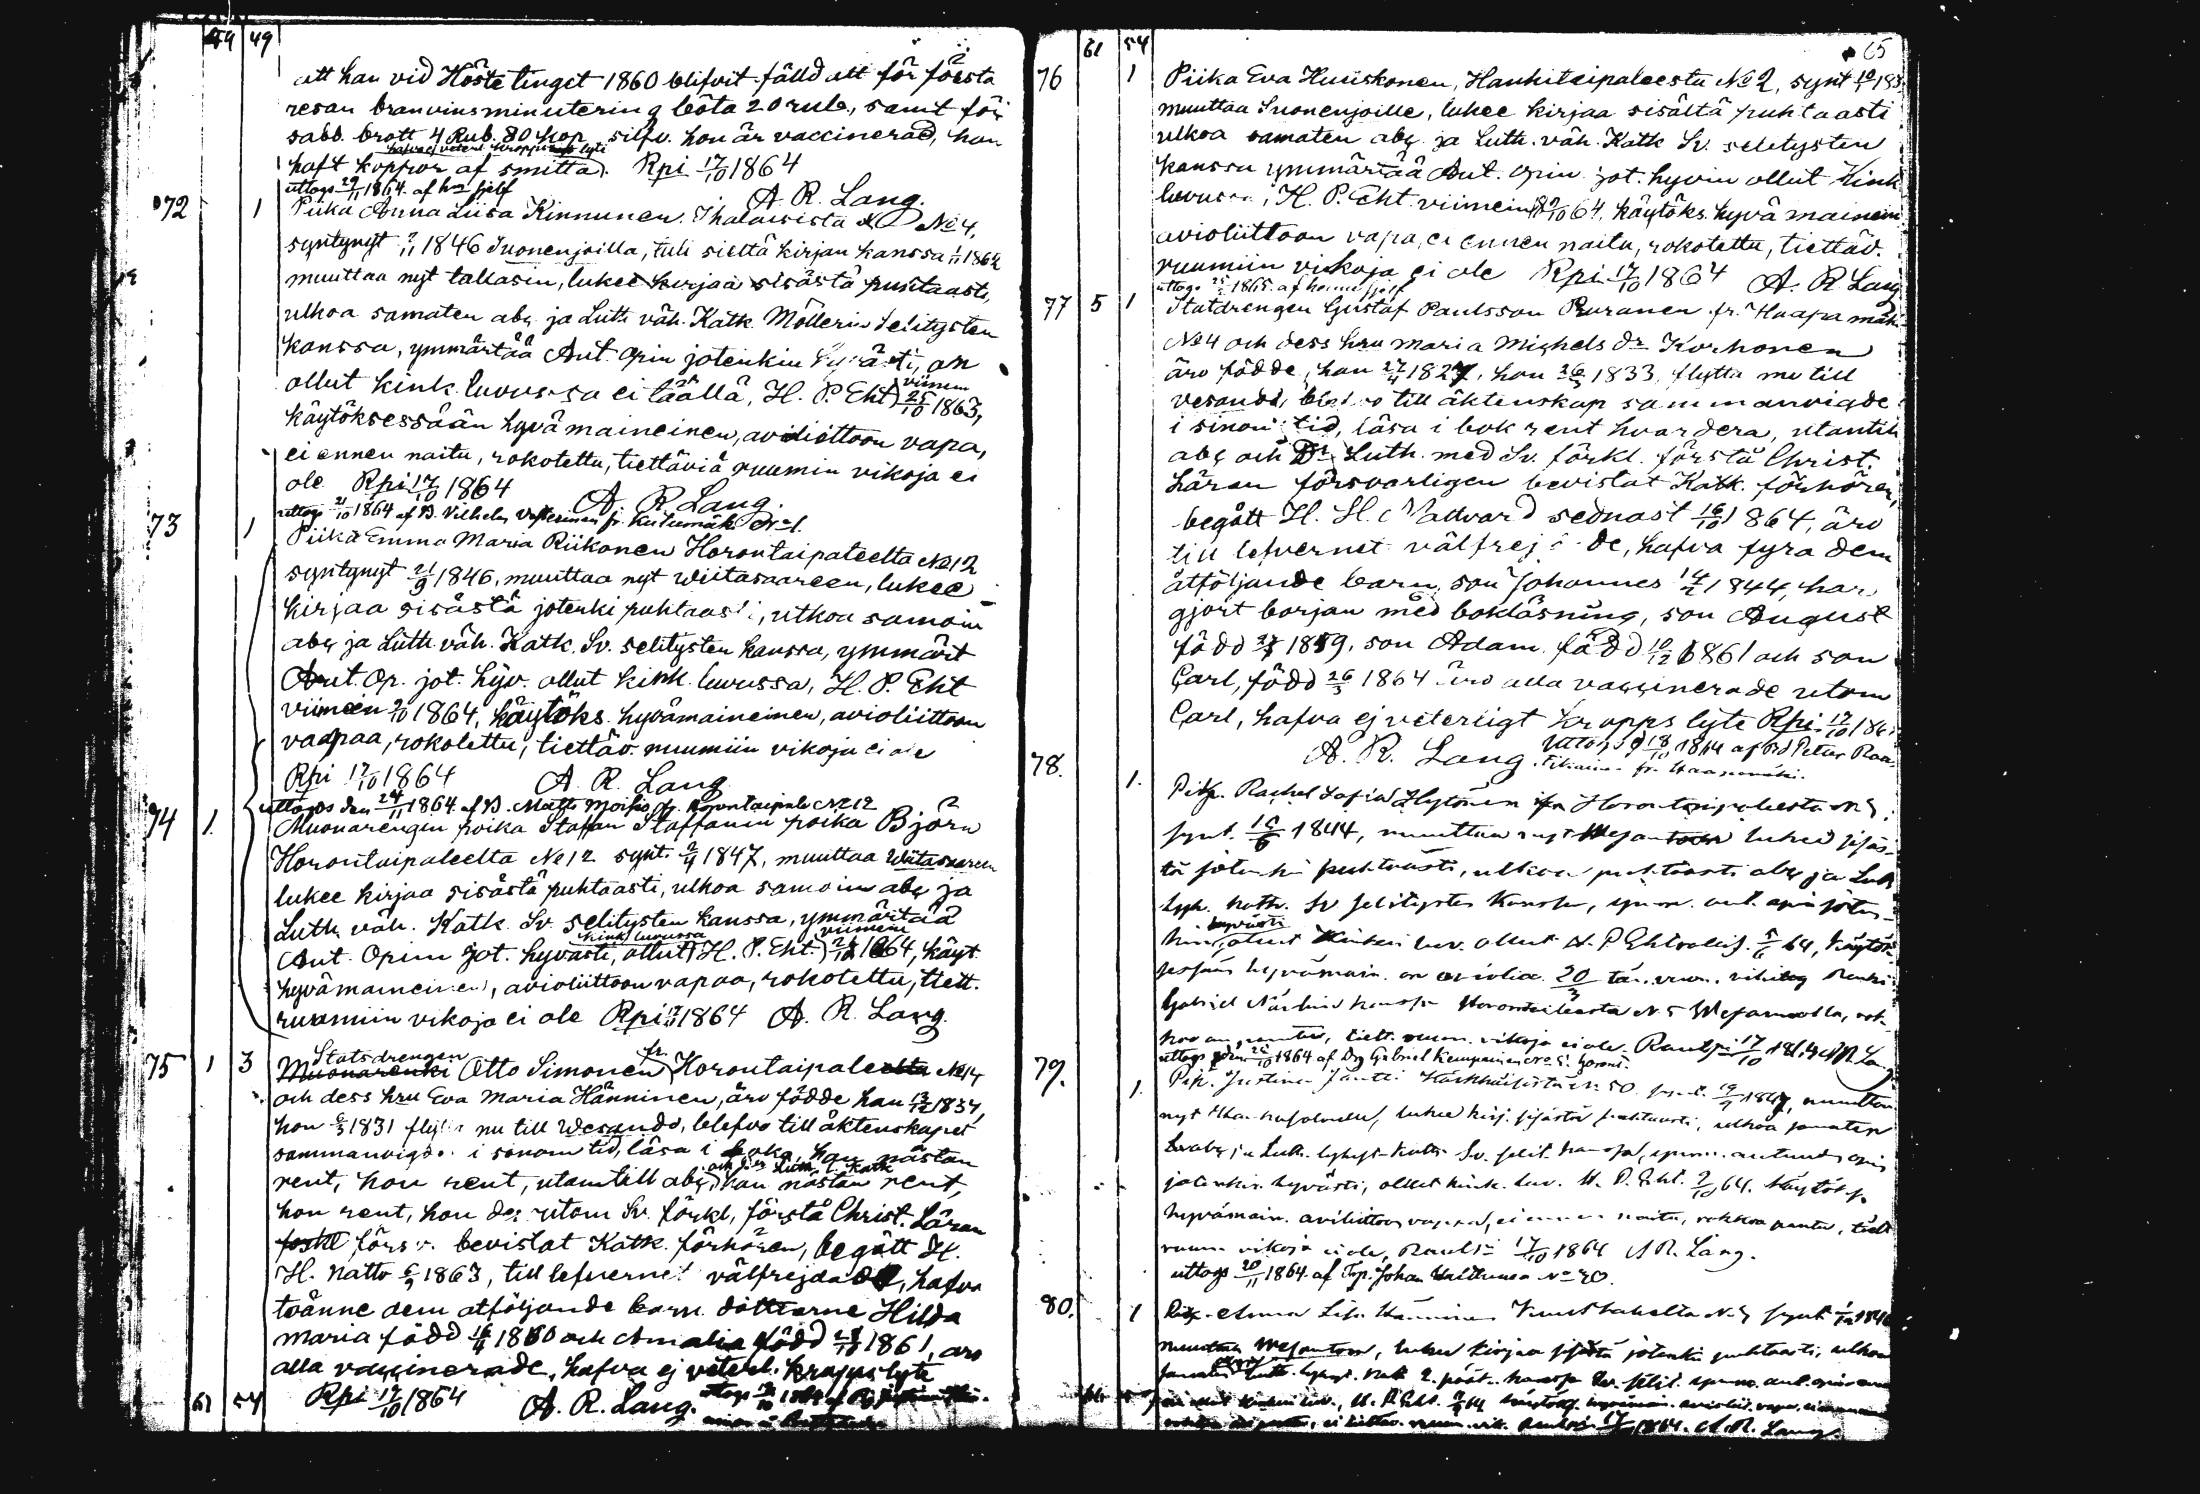 59 49
att han vid Höste tinget 1860 blifvit fälld att för första
resan branvinsminutering böta 20 rub., samt för
sabb. brott 4 Rub. 80 kop silfv. hon är vaccinerad, han
haft koppor af smitta. Rpi 17/10 1864
uttogs 29/11 1864 af hm sjelf
A. R. Lang.
72 1 Piika Anna Liisa Kinnunen Ihalaisista No 4,
syntynyt 1846 Suonenjoilla, tuli sieltä kirjan kanssa 1864
muuttaa nyt tallasin, lukee kirjaa sisästä puhtaasti,
ulkoa samaten abc ja Luth väh. Katk. Möllerin Selitysten
kanssa, ymmärtää Aut. opin jotenkin on
ollut kink. luvussa ei täällä, H. P. Eht. viimein 25/10 1863,
käytöksessään hyvämaineinen, avioliittoon vapa,
ei ennen naitu, rokotettu, tiettäviä ruumin vikoja ei
ole Rpi 17/10 1864
A. R. Lang.
uttogs 21/10 1864 af B. Vilhelm fr. No 1.
73 1 Piika Emma Maria Riikonen Horontaipaleelta No 12
syntynyt 21/9 1846, muuttaa nyt Wiitasaareen, lukee
kirjaa sisästä jotenki puhtaasti, ulkoa samoin
abc ja Luth väh. Katk. Sv. selitysten kanssa, ymmärt
Aut. Op. jot. hyv. ollut kink. luvussa, H. P. Eht
viimein 2/10 1864, käytöks. hyvämaineinen, avioliittoon
vaapaa, rokotettu, tiettäv. ruumiin vikoja ei ole
Rpi 17/10 1864 A. R. Lang
uttogs den 24/11 1864 af B. Matts Moisio fr. Horontaipale No 12
74 1. Muonarengin poika Staffan Staffanin poika Björn
Horontaipaleelta No 12 synt. 2/4 1847, muuttaa Wiitasaareen
lukee kirjaa sisästä puhtaasti, ulkoa samoin abc ja
Luth. väh. Katk. Sv. selitysten kanssa, ymmärtää
Aut. Opin jot. hyvästi, ollut kink luvussa H. P. Eht. viimein 1864, käyt.
hyvämaineinen, avioliittoon vapaa, rokotettu, tiett.
ruumiin vikoja ei ole Rpi 17/10 1864 A. R. Lang.
75 1 3 Statsdrengen Otto Simonen fr. Horontaipale No 14
och dess hru Eva Maria Hänninen, äro födde han 13/12 1834,
hon 6/3 1831 flytta nu till Wesando, blefvo till äktenskapet
sammanvigde i sinom tid, läsa i bok, han nästan
rent, hon rent, utantill abc och Drs Luth l. Katk han nästan rent,
hon rent, hon des utom Sv. förkl, förstå Christ. Läran
försv. bevistat Katk. förhören, begått H.
H. Natto 6/9 1863, till lefvernet välfrejdade, hafva
tvänne dem åtföljande barn döttrarne Hilda
Maria född 16/4 1860 och Amalia född 1861, äro
alla vaccinerade, hafva ej veterl. kroppslyte
61 54 Rpi 17/10 1864 A. R. Lang.
61 54 65
76 1 Piika Eva Huuskonen, Hankitaipaleesta No 2, synt
muuttaa Suonenjoille, lukee kirjaa sisältä puhtaasti
ulkoa samaten abc ja Luth. väh. Katk Sv. selitysten
kanssa ymmärtää Aut. opin jot. hyvin ollut Kink
luvussa, H. P. Eht viimein 2/10 64, käytöks. hyvä mainein
avioliittoon vapa, ei ennen naitu, rokotettu, tiettäv.
ruumiin vikoja ei ole Rpi 17/10 1864 A. R. Lang
uttogs 1865 af henne sjelf
77 5 1 Statdrengen Gustaf Paulsson Puranen fr. Haapamäki
No 4 och dess hru Maria Michels dr. Korhonen
äro födde, han 27/4 1827, hon 26/5 1833, flytta nu till
vesando, till äktenskap sammanvigde
i sinom tid, läsa i bok rent hvardera, utantill
abc och Dr. Luth. med Sv. förkl. förstå Christ.
Läran försvarligen bevistat Katk. förhören,
begått H. H. Nattvard sednast 16/10 1864, äro
till lefvernet välfrejdade, hafva fyra dem
åtföljande barn, son Johannes 1844, har
gjort borjan med bokläsning, son August
född 1859, son Adam född 10/12 1861 och son
Carl, född 26/3 1864 äro alla vaccinerade utom
Carl, hafva ej veterligt kropps lyte Rpi 17/10 186
A. R. Lang. Uttogs d 18/10 1864 af Bd Petter
fr. Haapamäki.
78. 1. Piik. Rachel Sofia Hytönen Horontaipaleesta No 5.
synt. 1844, muuttaa nyt Wesantoon lukee sisäs-
tä jotenki puhtaasti, ulkoa puhtaasti abc ja Luth
lyh. kath. Sv selitysten kanssa, ymm. aut. opin joten-
kin hyvästi, ollut kinkeri luv. ollut H. P Ehtoollis. 64, käytök-
sessään hyvämain. on avioliit. 20/3 vihitty Renki
Gabriel kanssa No 5
ruum. vikoja ei ole. Rautp. 17/10 1864 A R La
uttogs 1864 af Drg Gabriel Kemppainen No 5
79. 1. Piik. Justina Jäntti No 50. synt. 19/9 1847, muuttaa
nyt lukee kirj. sisästä puhtaasti, ulkoa samaten
abc ja Luth. lyhyt kath. Sv. selit. kanssa, ymm. autuud. opin
jotenkin hyvästi, ollut kink. luv. H. P. Eht. 2/10 64. käytöks
hyvämain. avioliittoon vapaa, ei ennen naitu, rokkoa pantu, tiett
ruum. vikoja ei ole, Rautp. 17/10 1864 A R. Lang.
uttogs 20/11 1864 af Trp. Johan No 20.
80. 1 Piik. Anna Lisa Hänninen No 5 synt 1846
muuttaa Wesantoon, lukee kirjaa sisästä jotenki puhtaasti, ulkoa
17/10 1864. A. R. Lang.